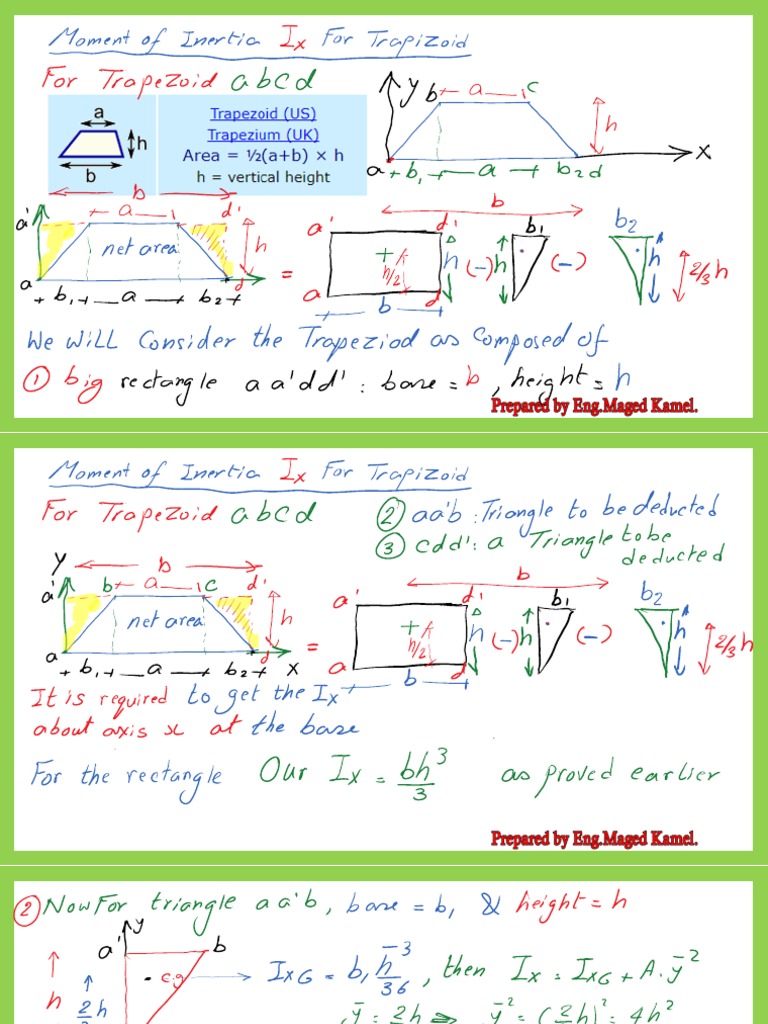 Moment of Inertia Ix For Trapizoid
For Trapezoid abcd
a
h
b
Trapezoid (US)
Trapezium (UK)
Area = ½(a+b) × h
h = vertical height
y b a c
h
a b1 a b2 d x
b
a' a d'
net area h
a d
b1 a b2
=
b
a' d' b1 b2
h/2 h (-) h (-) h 2/3 h
a d
b
We will Consider the Trapeziod as composed of
① big rectangle aa'dd' : base = b, height = h
Prepared by Eng.Maged Kamel.
Moment of Inertia Ix For Trapizoid
For Trapezoid abcd
② aa'b : Triangle to be deducted
③ cdd' : a Triangle to be deducted
y b
a' b a c d'
net area h
a d
b1 a b2 x
=
b
a' d' b1 b2
h/2 h (-) h (-) h 2/3 h
a d
b
It is required to get the Ix
about axis x at the base
For the rectangle Our Ix = bh³/3 as proved earlier
Prepared by Eng.Maged Kamel.
② Now For triangle aa'b, base = b1 & height = h
y
a' b
c.g
h
2h
IxG = b1 h³/36, then Ix = IxG + A.ȳ²
ȳ = 2h ⇒ ȳ² = (2h)² = 4h²